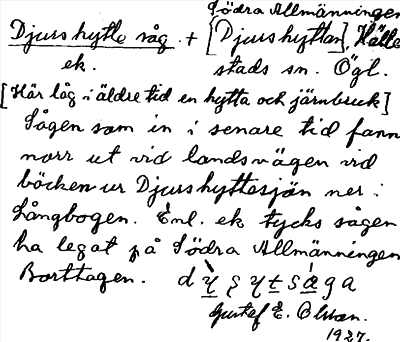 Södra Allmänningen
Djurshytte såg. + [Djurshyttan], Hälle
ek. stads sn. Ögl.
[Här låg i äldre tid en hytta och järnbruk]
Sågen som in i senare tid fann
norr ut vid landsvägen vid
bäcken ur Djurshyttesjön ner i
Långbogen. Enl. ek tycks sågen
ha legat på Södra Allmänningen
Borttagen.
Gustaf E. Olsson.
1927.